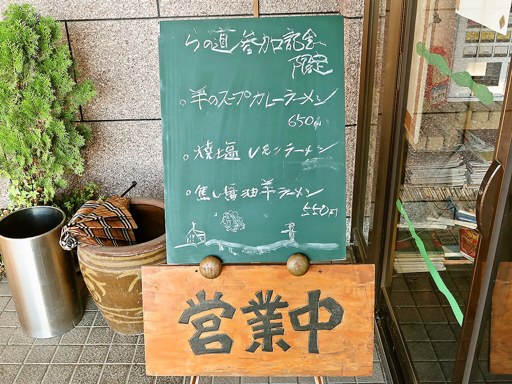 らの道参加記念
限定
。羊のスープカレーラーメン
650円
。焼塩レモンラーメン
。焦し醤油羊ラーメン
550円
営業中